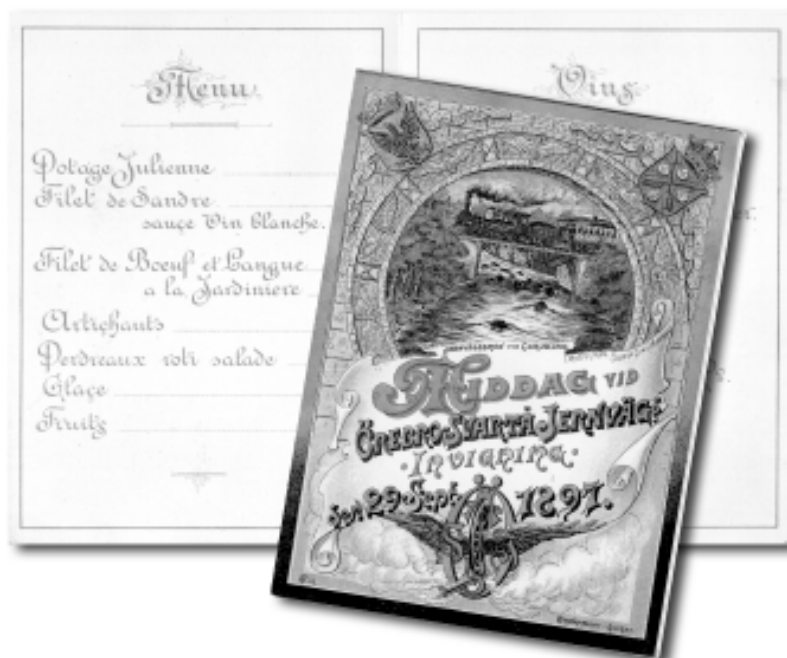 Menu
Potage Julienne
Filet de Sandre
sauçe Vin blanche.
Filet de Boeuf et Langue
a la Jardiniere
Artiçhauts
Perdreaux roti salade
Glaçe
Fruits
Vins
MIDDAG VID
ÖREBRO-SVARTÅ JERNVÄGS
INVIGNING.
den 29 Sept. 1897.